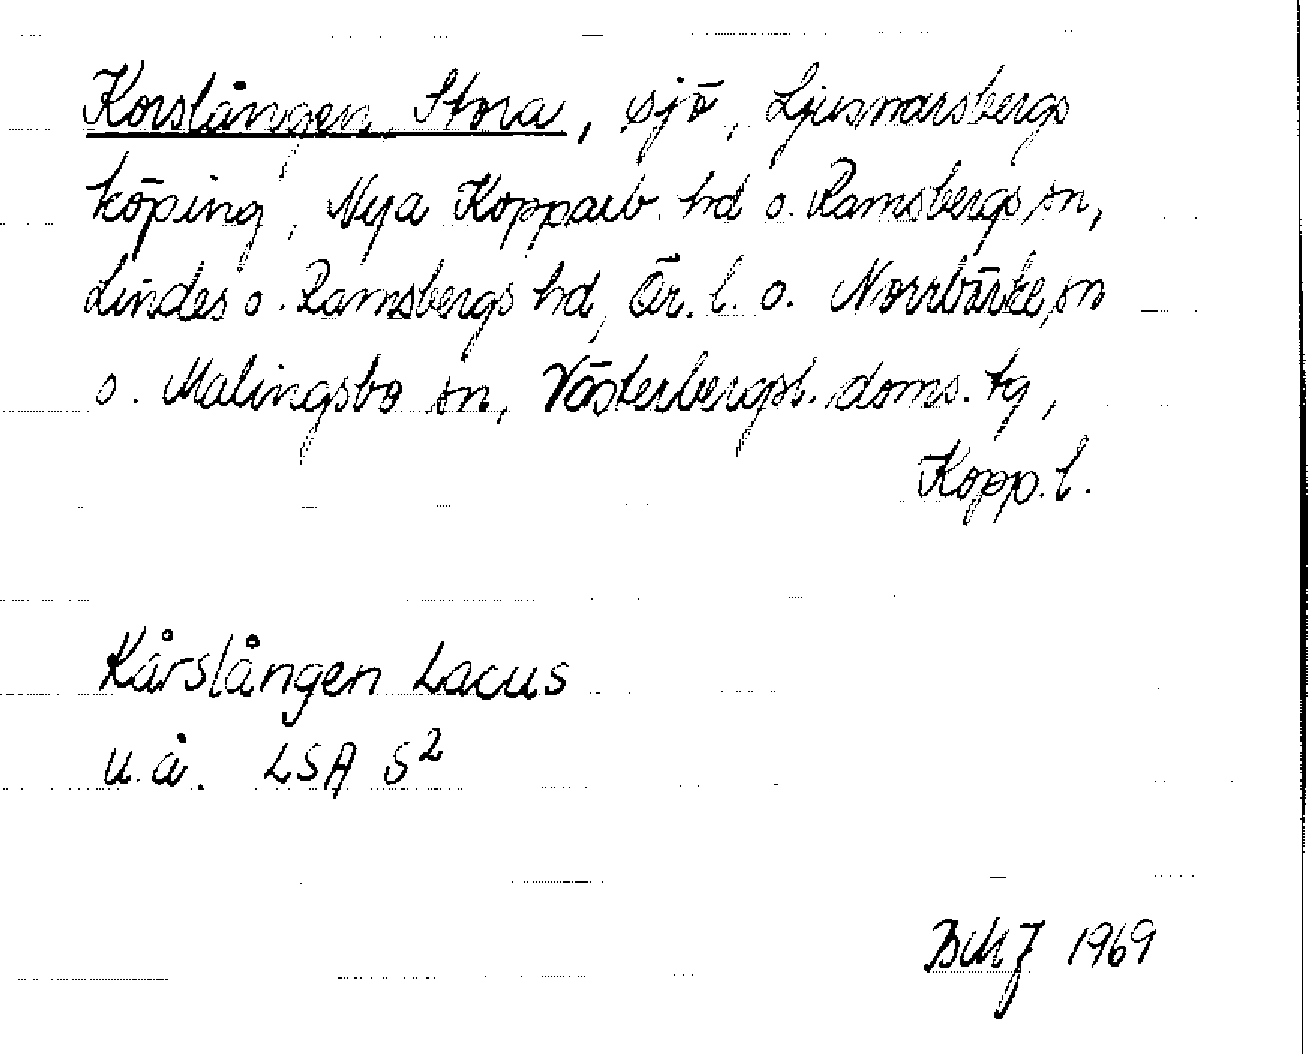 Korslången, Stora, sjö, Ljusnarsbergs
köping, Nya Kopparb. hd o. Ramsbergs sn,
Lindes o. Ramsbergs hd, Ör. l. o. Norrbärke sn
o. Malingsbo sn, Västerbergsl. doms. tg,
Kopp. l.
Kårslången Lacus
u.å. LSA S²
BMJ 1969